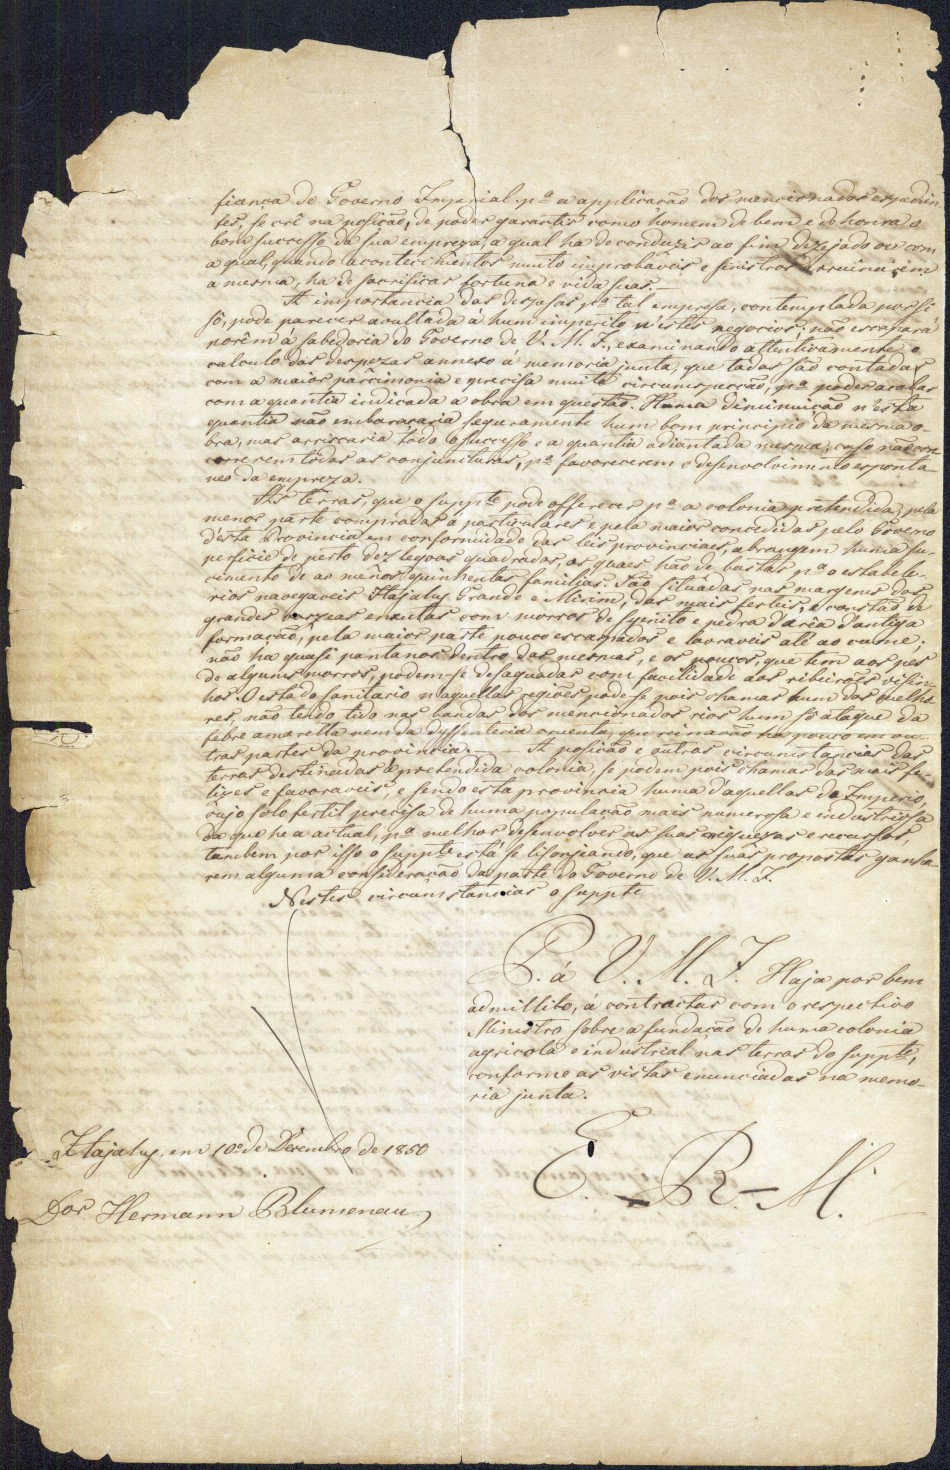 fiança do Governo Imperial pª a applicação dos mencionados expedien-
tes, se crê na posição, de poder garantir como homem de bem e de honra o
bom successo da sua empreza, a qual ha de conduzir ao fim dezejado ou com
a qual, quando acontecimentos muito improbáveis e sinistros arruinarem
a mesma, ha de sacrificar fortuna e vida suas.—
A importancia das despesas pª tal empresa, contemplada por si
só, pode parecer avultada á hum imperito n'estes negocios; não escapará
porêm á sabedoria do Governo de V. M. I., examinando attentivamente o
calculo das despezas annexo á memoria junta, que todas são contadas
com a maior parcimonia e precisa muita circumspecção, pª poder acabar
com a quantia indicada a obra em questão. Huma diminuição n'esta
quantia não embaraçaria seguramente hum bom principio da mesma o-
bra, mas arriscaria todo o successo e a quantia adiantada mesma, caso não con-
correrem todas as conjuncturas, pª favorecerem o desenvolvimento esponta-
neo da empreza.
As terras, que o suppte pode offerecer pª a colonia pretendida, pela
menor parte compradas á particulares e pela maior concedidas pelo Governo
d'esta Provincia em conformidade das leis provinciaes, abrangem huma su-
perficie de perto dez legoas quadradas, as quaes hão de bastar pª o estabele-
cimento de ao menos quinhentas familias. São situadas nas margens dos
rios navegaveis Itajahy Grande e Mirim, das mais ferteis, e constão de
grandes varzeas enxutas com morros de syenito e pedra d'aria d'antiga
formação, pela maior parte pouco escarpados e lavraveis até ao cume;
não ha quasi pantanos dentro das mesmas, e os poucos, que tem aos pés
de alguns morros, podem-se desaguadar com facilidade aos ribeirões visin-
hos. O estado sanitario n'aquellas regiões pode-se pois chamar hum dos melho-
res, não tendo tido nas bandas dos mencionados rios hum só ataque da
febre amarella nem da dyssenteria cruenta, que reinarão ha pouco em ou-
tras partes da provincia.— A posição e outras circumstancias das
terras destinadas á pretendida colonia, se podem pois chamar das mais fe-
lizes e favoraveis, e sendo esta provincia huma d'aquellas do Imperio,
cujo solo fertil precisa de huma população mais numerosa e industriosa
do que he a actual, pª melhor desenvolver as suas riquezas e recursos,
tambem por isso o suppte está se lisonjeando, que as suas propostas ganha-
rem alguma consideração da parte do Governo de V. M. I.
Nestes circumstancias o suppte
P. á V. M. I. Haja por bem
admittilo, á contractar com o respectivo
Ministro sobre a fundação de huma colonia
agricola e industrial nas terras do suppte,
conforme as vistas enunciadas na memo-
ria junta.
E. R. M.
Itajahy, em 10 de Dezembro de 1850
Dor Hermann Blumenau